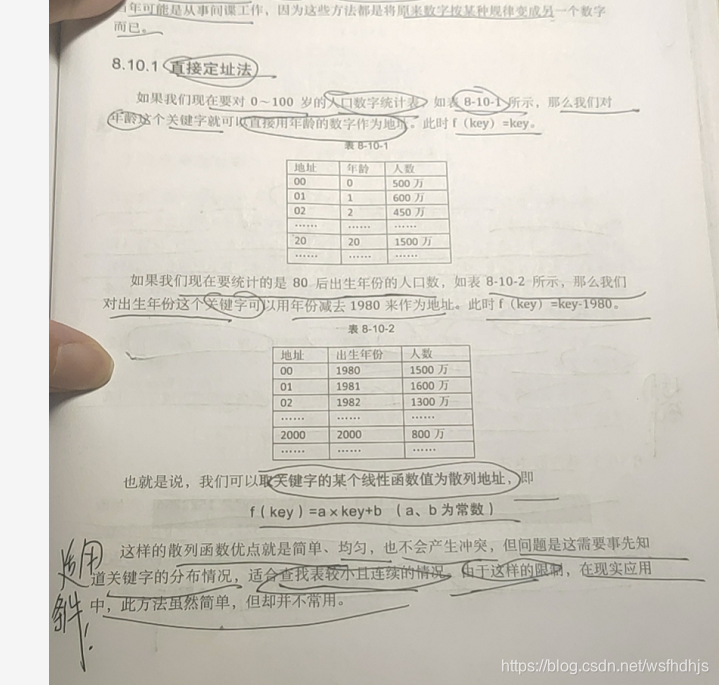 年可能是从事间谍工作，因为这些方法都是将原来数字按某种规律变成另一个数字
而已。
8.10.1 直接定址法
如果我们现在要对 0～100 岁的人口数字统计表，如表 8-10-1 所示，那么我们对
年龄这个关键字就可以直接用年龄的数字作为地址。此时 f（key）=key。
表 8-10-1
地址 年龄 人数
00 0 500 万
01 1 600 万
02 2 450 万
…… …… ……
20 20 1500 万
…… …… ……
如果我们现在要统计的是 80 后出生年份的人口数，如表 8-10-2 所示，那么我们
对出生年份这个关键字可以用年份减去 1980 来作为地址。此时 f（key）=key-1980。
表 8-10-2
地址 出生年份 人数
00 1980 1500 万
01 1981 1600 万
02 1982 1300 万
…… …… ……
2000 2000 800 万
…… …… ……
也就是说，我们可以取关键字的某个线性函数值为散列地址，即
f（key）=a×key+b （a、b 为常数）
这样的散列函数优点就是简单、均匀，也不会产生冲突，但问题是这需要事先知
道关键字的分布情况，适合查找表较小且连续的情况。由于这样的限制，在现实应用
中，此方法虽然简单，但却并不常用。
适用
条件！
https://blog.csdn.net/wsfhdhjs